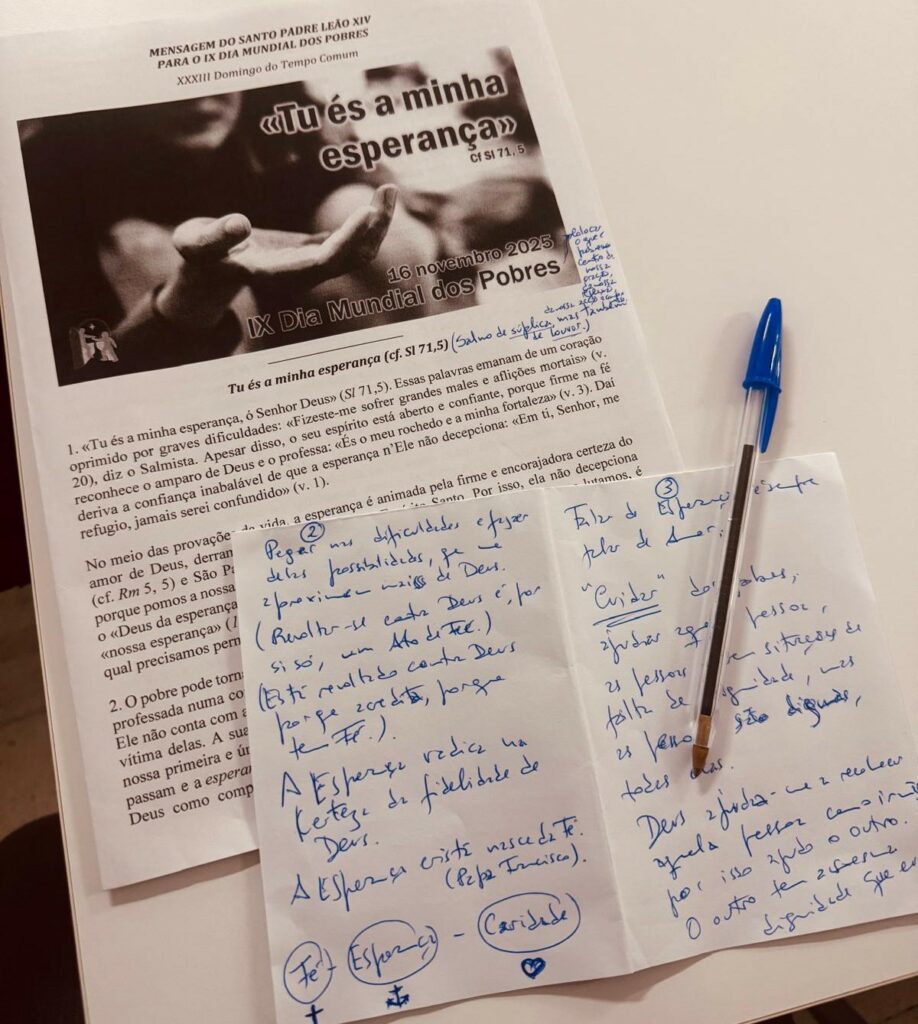 MENSAGEM DO SANTO PADRE LEÃO XIV
PARA O IX DIA MUNDIAL DOS POBRES
XXXIII Domingo do Tempo Comum
«Tu és a minha
esperança»
Cf Sl 71, 5
16 novembro 2025
IX Dia Mundial dos Pobres
Colocar
o que é
centro de
nossa
oração,
de nossa
de nossa ação
mas também
(Salmo de súplica, mas também
de louvor.)
Tu és a minha esperança (cf. Sl 71,5)
1. «Tu és a minha esperança, ó Senhor Deus» (Sl 71,5). Essas palavras emanam de um coração
oprimido por graves dificuldades: «Fizeste-me sofrer grandes males e aflições mortais» (v.
20), diz o Salmista. Apesar disso, o seu espírito está aberto e confiante, porque firme na fé
reconhece o amparo de Deus e o professa: «És o meu rochedo e a minha fortaleza» (v. 3). Daí
deriva a confiança inabalável de que a esperança n'Ele não decepciona: «Em ti, Senhor, me
refugio, jamais serei confundido» (v. 1).
No meio das provações da vida, a esperança é animada pela firme e encorajadora certeza do
amor de Deus, derram Espírito Santo. Por isso, ela não decepciona
(cf. Rm 5, 5) e São Pa lutamos, é
porque pomos a nossa
o «Deus da esperança
«nossa esperança» (1
qual precisamos perm
2. O pobre pode torn
professada numa co
Ele não conta com a
vítima delas. A sua
nossa primeira e ún
passam e a esperan
Deus como comp
2
Pegar nas dificuldades e fazer
delas possibilidades, que me
aproximem mais de Deus.
(Revoltar-se contra Deus é, por
si só, um Ato de Fé.)
(Está revoltado contra Deus
porque acredita, porque
tem Fé.).
A Esperança radica na
certeza da fidelidade de
Deus.
A Esperança cristã nasce da Fé.
(Papa Francisco).
Fé - Esperança - Caridade
3
Falar de Esperança é sempre
falar de Amor:
"Cuidar" dos pobres,
ajudar aquela pessoa,
as pessoas em situação de
falta de dignidade, mas
as pessoas são dignas,
todas elas.
Deus ajuda-me a reconhecer
aquela pessoa como irmão
por isso ajudo o outro.
O outro tem a mesma
dignidade que eu